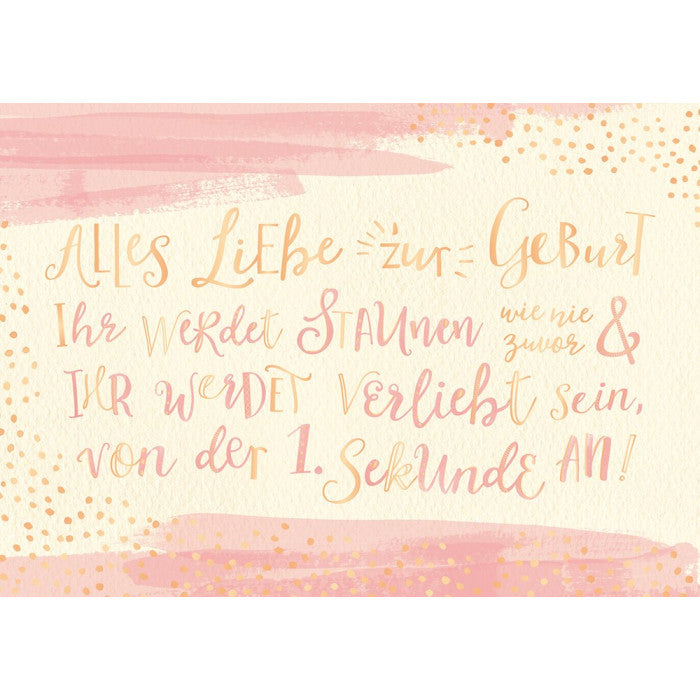 Alles Liebe zur Geburt
Ihr werdet Staunen wie nie zuvor &
Ihr werdet verliebt sein,
von der 1. Sekunde an!